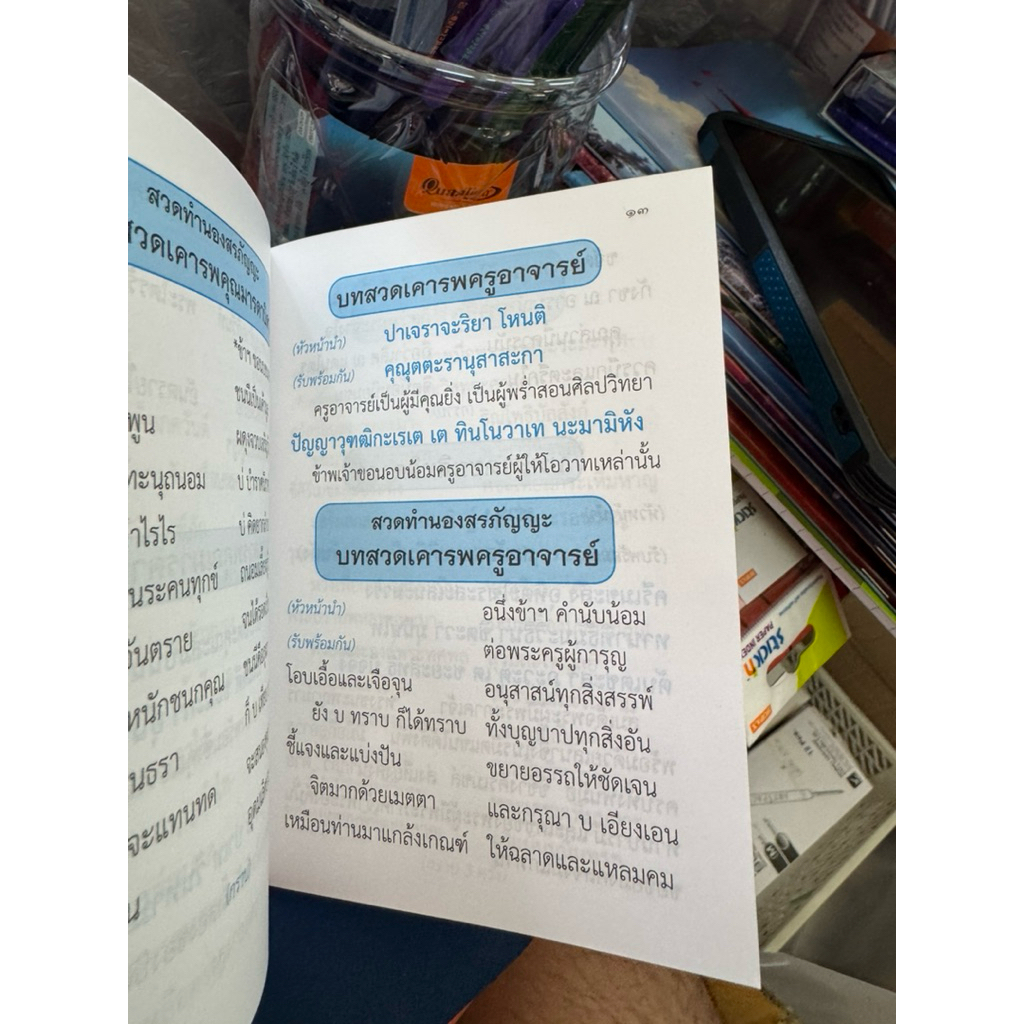 สวดทำนองสรภัญญะ
พูน
ทะนุถนอม
ำไรไร
นระคนทุกข์
อันตราย
หนักชนกคุณ
นธรา
จะแทนทด
น
๑๓
บทสวดเคารพครูอาจารย์
(หัวหน้านำ) ปาเจราจะริยา โหนติ
(รับพร้อมกัน) คุณุตตะรานุสาสะกา
ครูอาจารย์เป็นผู้มีคุณยิ่ง เป็นผู้พร่ำสอนศิลปวิทยา
ปัญญาวุฑฒิกะเรเต เต ทินโนวาเท นะมามิหัง
ข้าพเจ้าขอนอบน้อมครูอาจารย์ผู้ให้โอวาทเหล่านั้น
สวดทำนองสรภัญญะ
บทสวดเคารพครูอาจารย์
(หัวหน้านำ) อนึ่งข้าฯ คำนับน้อม
(รับพร้อมกัน) ต่อพระครูผู้การุญ
โอบเอื้อและเจือจุน อนุสาสน์ทุกสิ่งสรรพ์
ยัง บ ทราบ ก็ได้ทราบ ทั้งบุญบาปทุกสิ่งอัน
ชี้แจงและแบ่งปัน ขยายอรรถให้ชัดเจน
จิตมากด้วยเมตตา และกรุณา บ เอียงเอน
เหมือนท่านมาแกล้งเกณฑ์ ให้ฉลาดและแหลมคม
stick n
PAPER INDEX